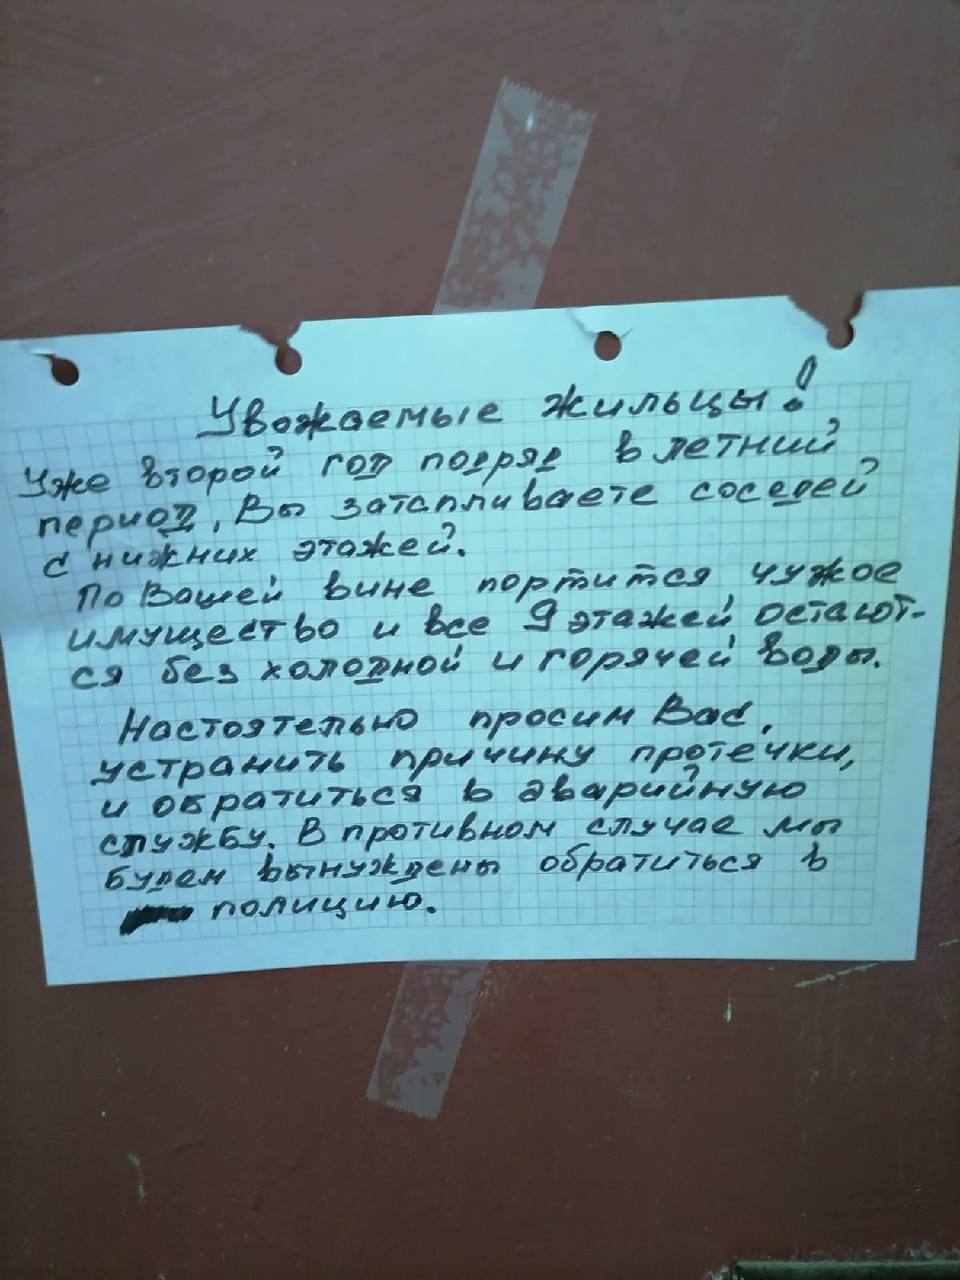 Уважаемые жильцы!
Уже второй год подряд в летний
период, Вы затапливаете соседей
с нижних этажей.
По Вашей вине портится чужое
имущество и все 9 этажей остают-
ся без холодной и горячей воды.
Настоятельно просим Вас,
устранить причину протечки,
и обратиться в аварийную
службу. В противном случае мы
будем вынуждены обратиться в
полицию.